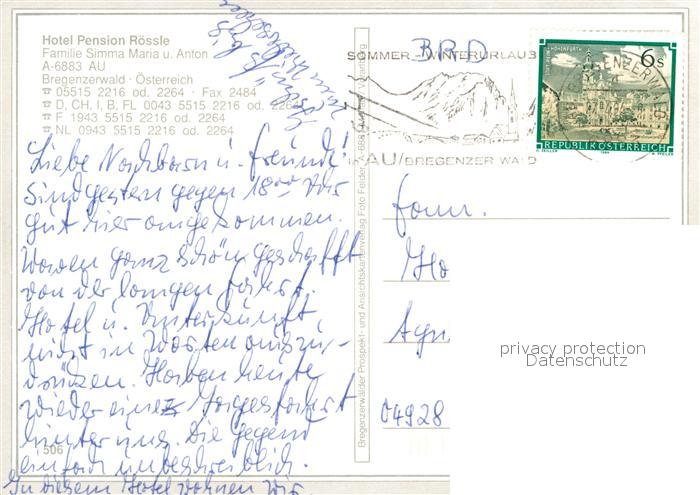 Hotel Pension Rössle
Familie Simma Maria u. Anton
A-6883 AU
Bregenzerwald · Österreich
☎ 05515 2216 od. 2264 · Fax 2484
☎ D, CH, I, B, FL 0043 5515 2216 od. 2264
☎ F 1943 5515 2216 od. 2264
☎ NL 0943 5515 2216 od. 2264
Liebe Nachbarn u. Freunde!
Sind gestern gegen 18⁰⁰ Uhr
gut hier angekommen.
Waren ganz schön geschafft
von der langen Fahrt.
Hotel u. Unterkunft
nicht in Worten auszu-
drücken. Haben heute
wieder eine Tagesfahrt
hinter uns. Die Gegend
einfach unbeschreiblich.
In diesem Hotel wohnen wir
506
Bregenzerwälder Prospekt- und Ansichtskartenverlag Foto Felder
BRD
SOMMER - WINTERURLAUB
AU/BREGENZER WALD
6 S
HOHENFURTH
REPUBLIK ÖSTERREICH
Fam.
04928
privacy protection
Datenschutz